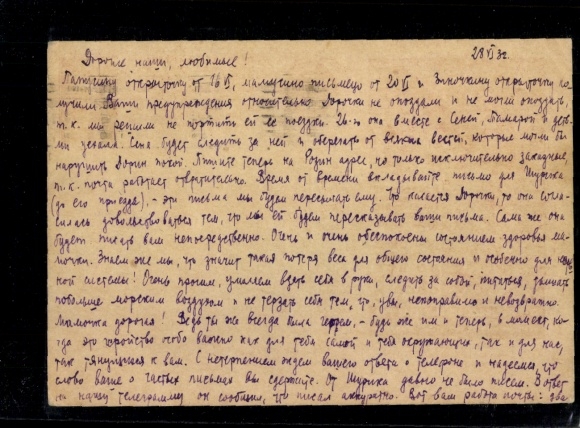 28 VI 32.
Дорогие наши, любимые!
Папину открыточку от 16 VI, мамусино письмецо от 20 VI и Зиночкину открыточку по-
лучили. Ваши предупреждения относительно Дорочки не опоздали и не могли опоздать,
т.к. мы решили не портить ей ее поездки. 26-го она вместе с Сеней, Тамарой и деть-
ми уехала. Сеня будет следить за ней и оберегать от всяких вестей, которые могли бы
нарушить Дорин покой. Пишите теперь на Розин адрес, но только исключительно заказные,
т.к. почта работает отвратительно. Время от времени вкладывайте письмо для Шурика
(до его приезда), - эти письма мы будем пересылать ему. Что касается Дорочки, то она согла-
силась довольствоваться тем, что мы ей будем пересказывать ваши письма. Сама же она
будет писать вам непосредственно. Очень и очень обеспокоены состоянием здоровья ма-
мочки. Знаем же мы, что значит такая потеря веса для общего состояния и особенно для нерв-
ной системы! Очень просим, умоляем взять себя в руки, следить за собой, питаться, дышать
побольше морским воздухом и не терзать себя тем, что, увы, непоправимо и невозвратно.
Мамочка дорогая! Ведь ты же всегда была героем, - будь же им и теперь, в момент, ко-
гда это геройство особо важно как для тебя самой и тебя окружающих, так и для нас,
так тянущихся к вам. С нетерпением ждем вашего ответа о телефоне и надеемся, что
слово ваше о частых письмах вы сдержите. От Шурика давно не было писем. В ответ
на нашу телеграмму он сообщил, что писал аккуратно. Вот вам работа почты: два